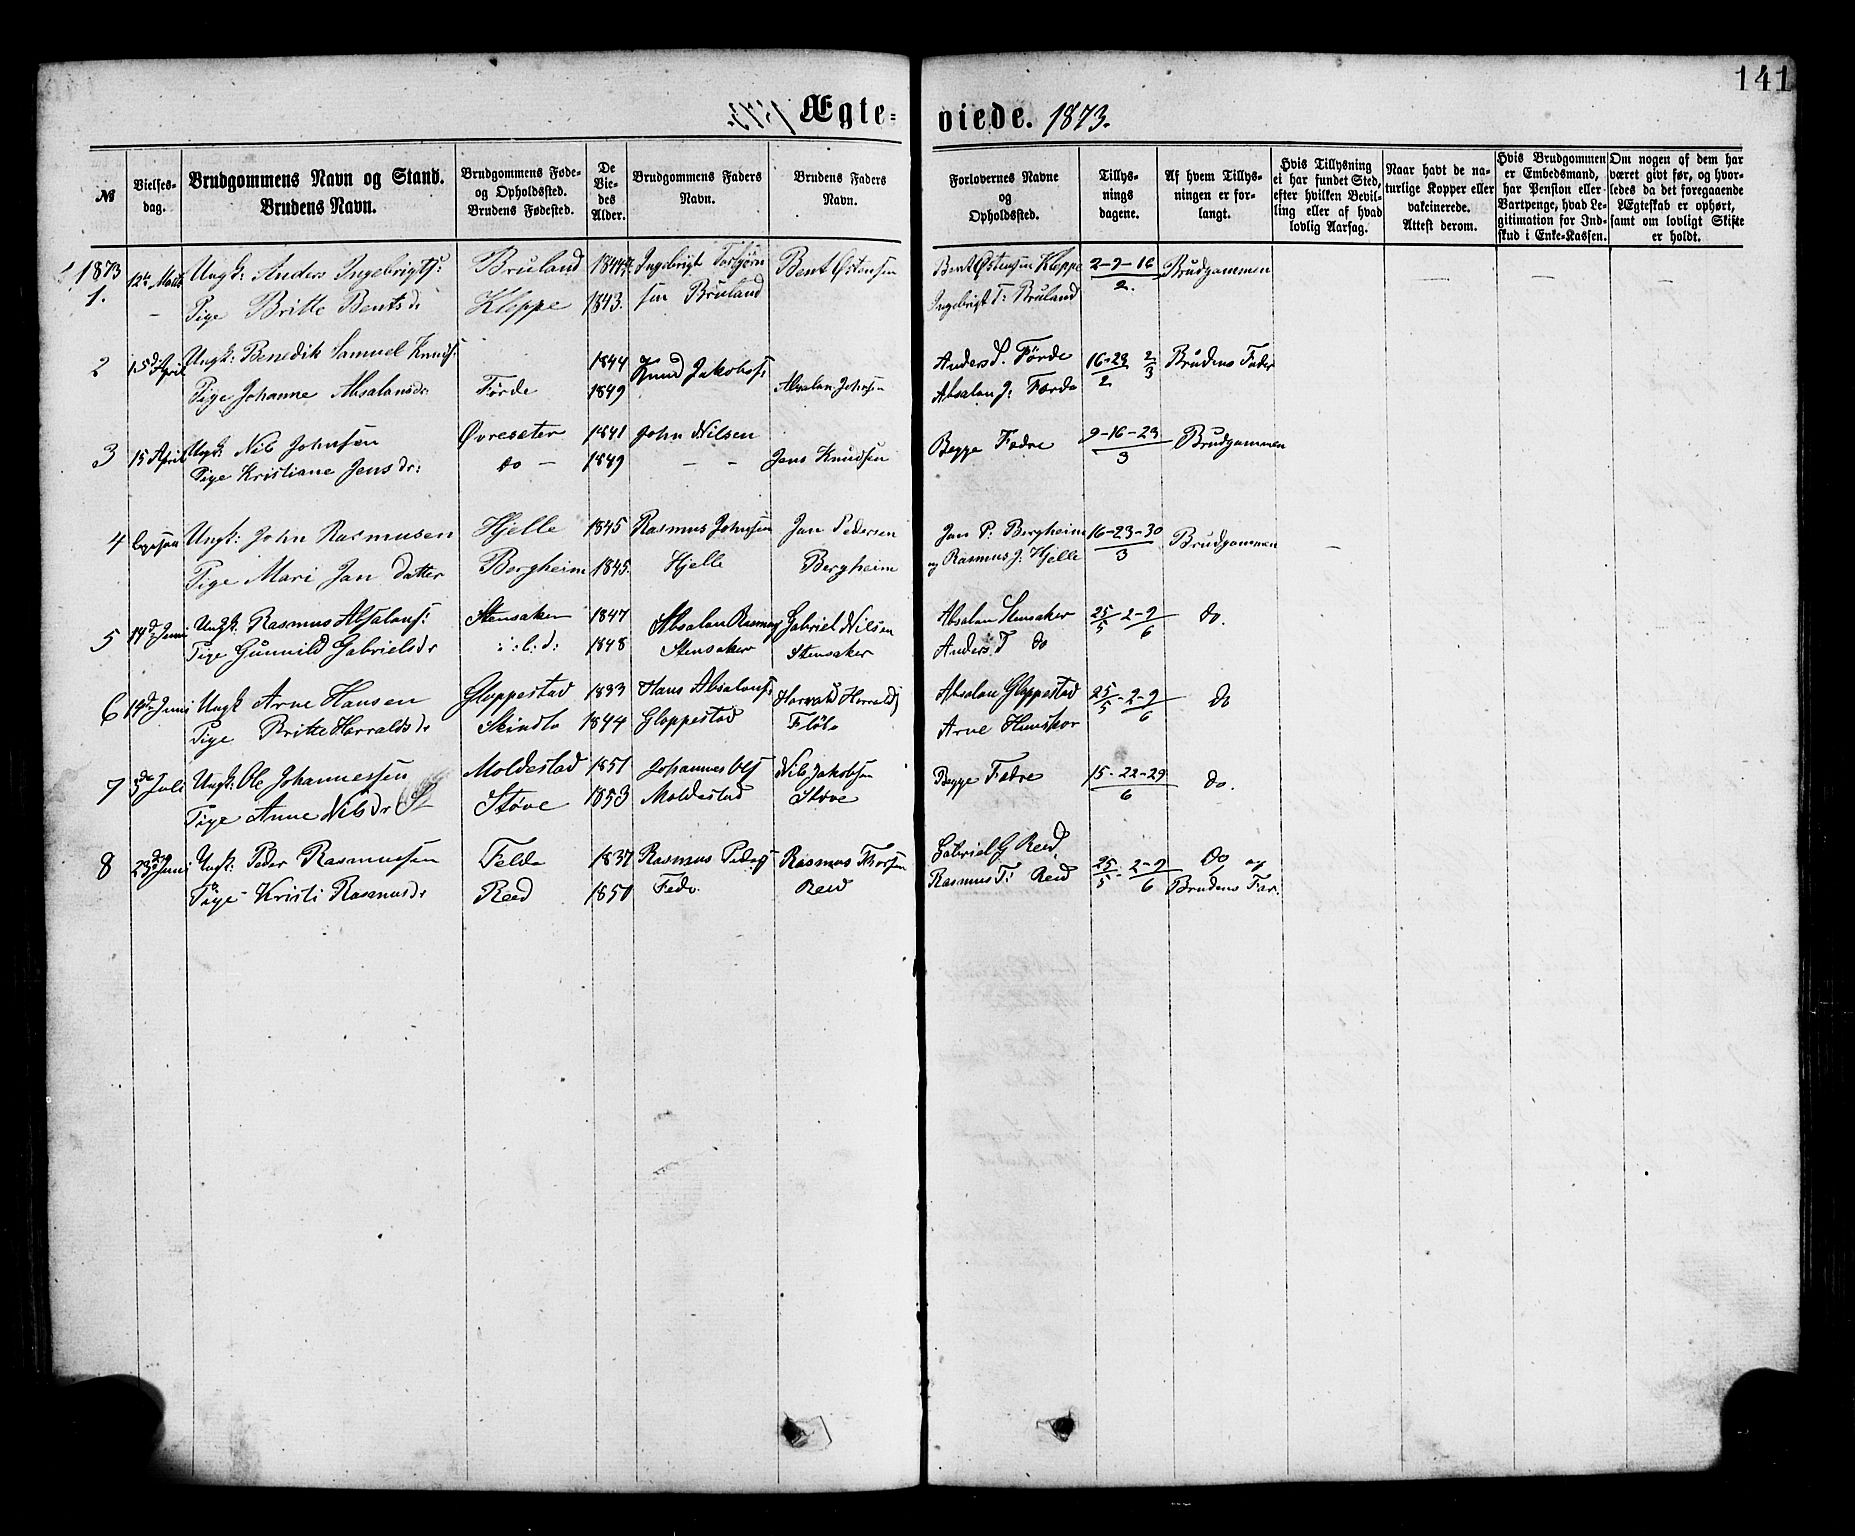 141
Ægte= viede. 1873.
№
Vielses-
dag.
Brudgommens Navn og Stand.
Brudens Navn.
Brudgommens Føde-
og Opholdssted.
Brudens Fødested.
De
Vie-
des
Alder.
Brudgommens Faders
Navn.
Brudens Faders
Navn.
Forlovernes Navne
og
Opholdssted.
Tillys-
nings
dagene.
Af hvem Tillys-
ningen er for-
langt.
Hvis Tillysning
ei har fundet Sted,
efter hvilken Bevil-
ling eller af hvad
lovlig Aarsag.
Naar havt de na-
turlige Kopper eller
vakcinerede.
Attest derom.
Hvis Brudgommen
er Embedsmand,
har Pension eller
Vartpenge, hvad Le-
gitimation for Ind-
skud i Enke-Kassen.
Om nogen af dem har
været givt før, og hvor-
ledes da det foregaaende
Ægteskab er ophørt,
samt om lovligt Skifte
er holdt.
1873
1. 12te Ungk: Anders Ingebrigts: Bruland 1844 Ingebrigt Torbjørn Bent Østensen Bent Østensen Kleppe 2-9-16 Brudgommen
Pige Britte Bentsdr Kleppe 1843. sen Bruland Ingebrigt T: Bruland 2.
2 15de April Ungk: Benedik Samuel Knuds: 1844 Knud Jakobs: Anders S. Förde 16-23 2 Brudens Fader
Pige Johanne Absalonsdr Förde 1849 Absalon Johnsen Absalon J: Förde 2 3
3 15 April Ungk: Nils Johnsen Øvreseter 1841 John Nilsen Begge Fædre 9-16-23 Brudgommen
Pige Kristiane Jensdr: do - 1849 - - Jens Knudsen 3
4 Ungk: John Rasmusen Hjelle 1845 Rasmus Johnsen Jan Pedersen Jan P: Bergheim 16-23-30 Brudgommen
Pige Mari Jan datter Bergheim 1845. Hjelle Bergheim og Rasmus J: Hjelle 3
5 14de Juni Ungk: Rasmus Absalons: Stensaker 1847 Absalon Rasmus Gabriel Nilsen Absalon Stensaker 25 -2-9 do.
Pige Gunnild Gabrielsdr 1848 Stensaker Stensaker Anders T do 5 6
6 14de Juni Ungk Arne Hansen Gloppestad 1833 Hans Absalons: Anders Absalon Gloppestad 25 -2-9 do
Pige Britte Harraldsdr 1844 Gloppestad Arne 5 6
7 5de Juli Ungk: Ole Johannessen Moldestad 1851 Johannes Ols Nils Jakobsen Begge Fædre 15-22-29 do.
Pige Anne Nilsdr Støve 1853 Moldestad Støve 6
8 23de Juni Ungk: Peder Rasmussen Felde 1837 Rasmus Peders Rasmus Thorsen Gabriel G Reed 25 -2-9 do og
Pige Kristi Rasmusdr Reed 1850 Reed Rasmus T: Reed 5 6 Brudens Far.